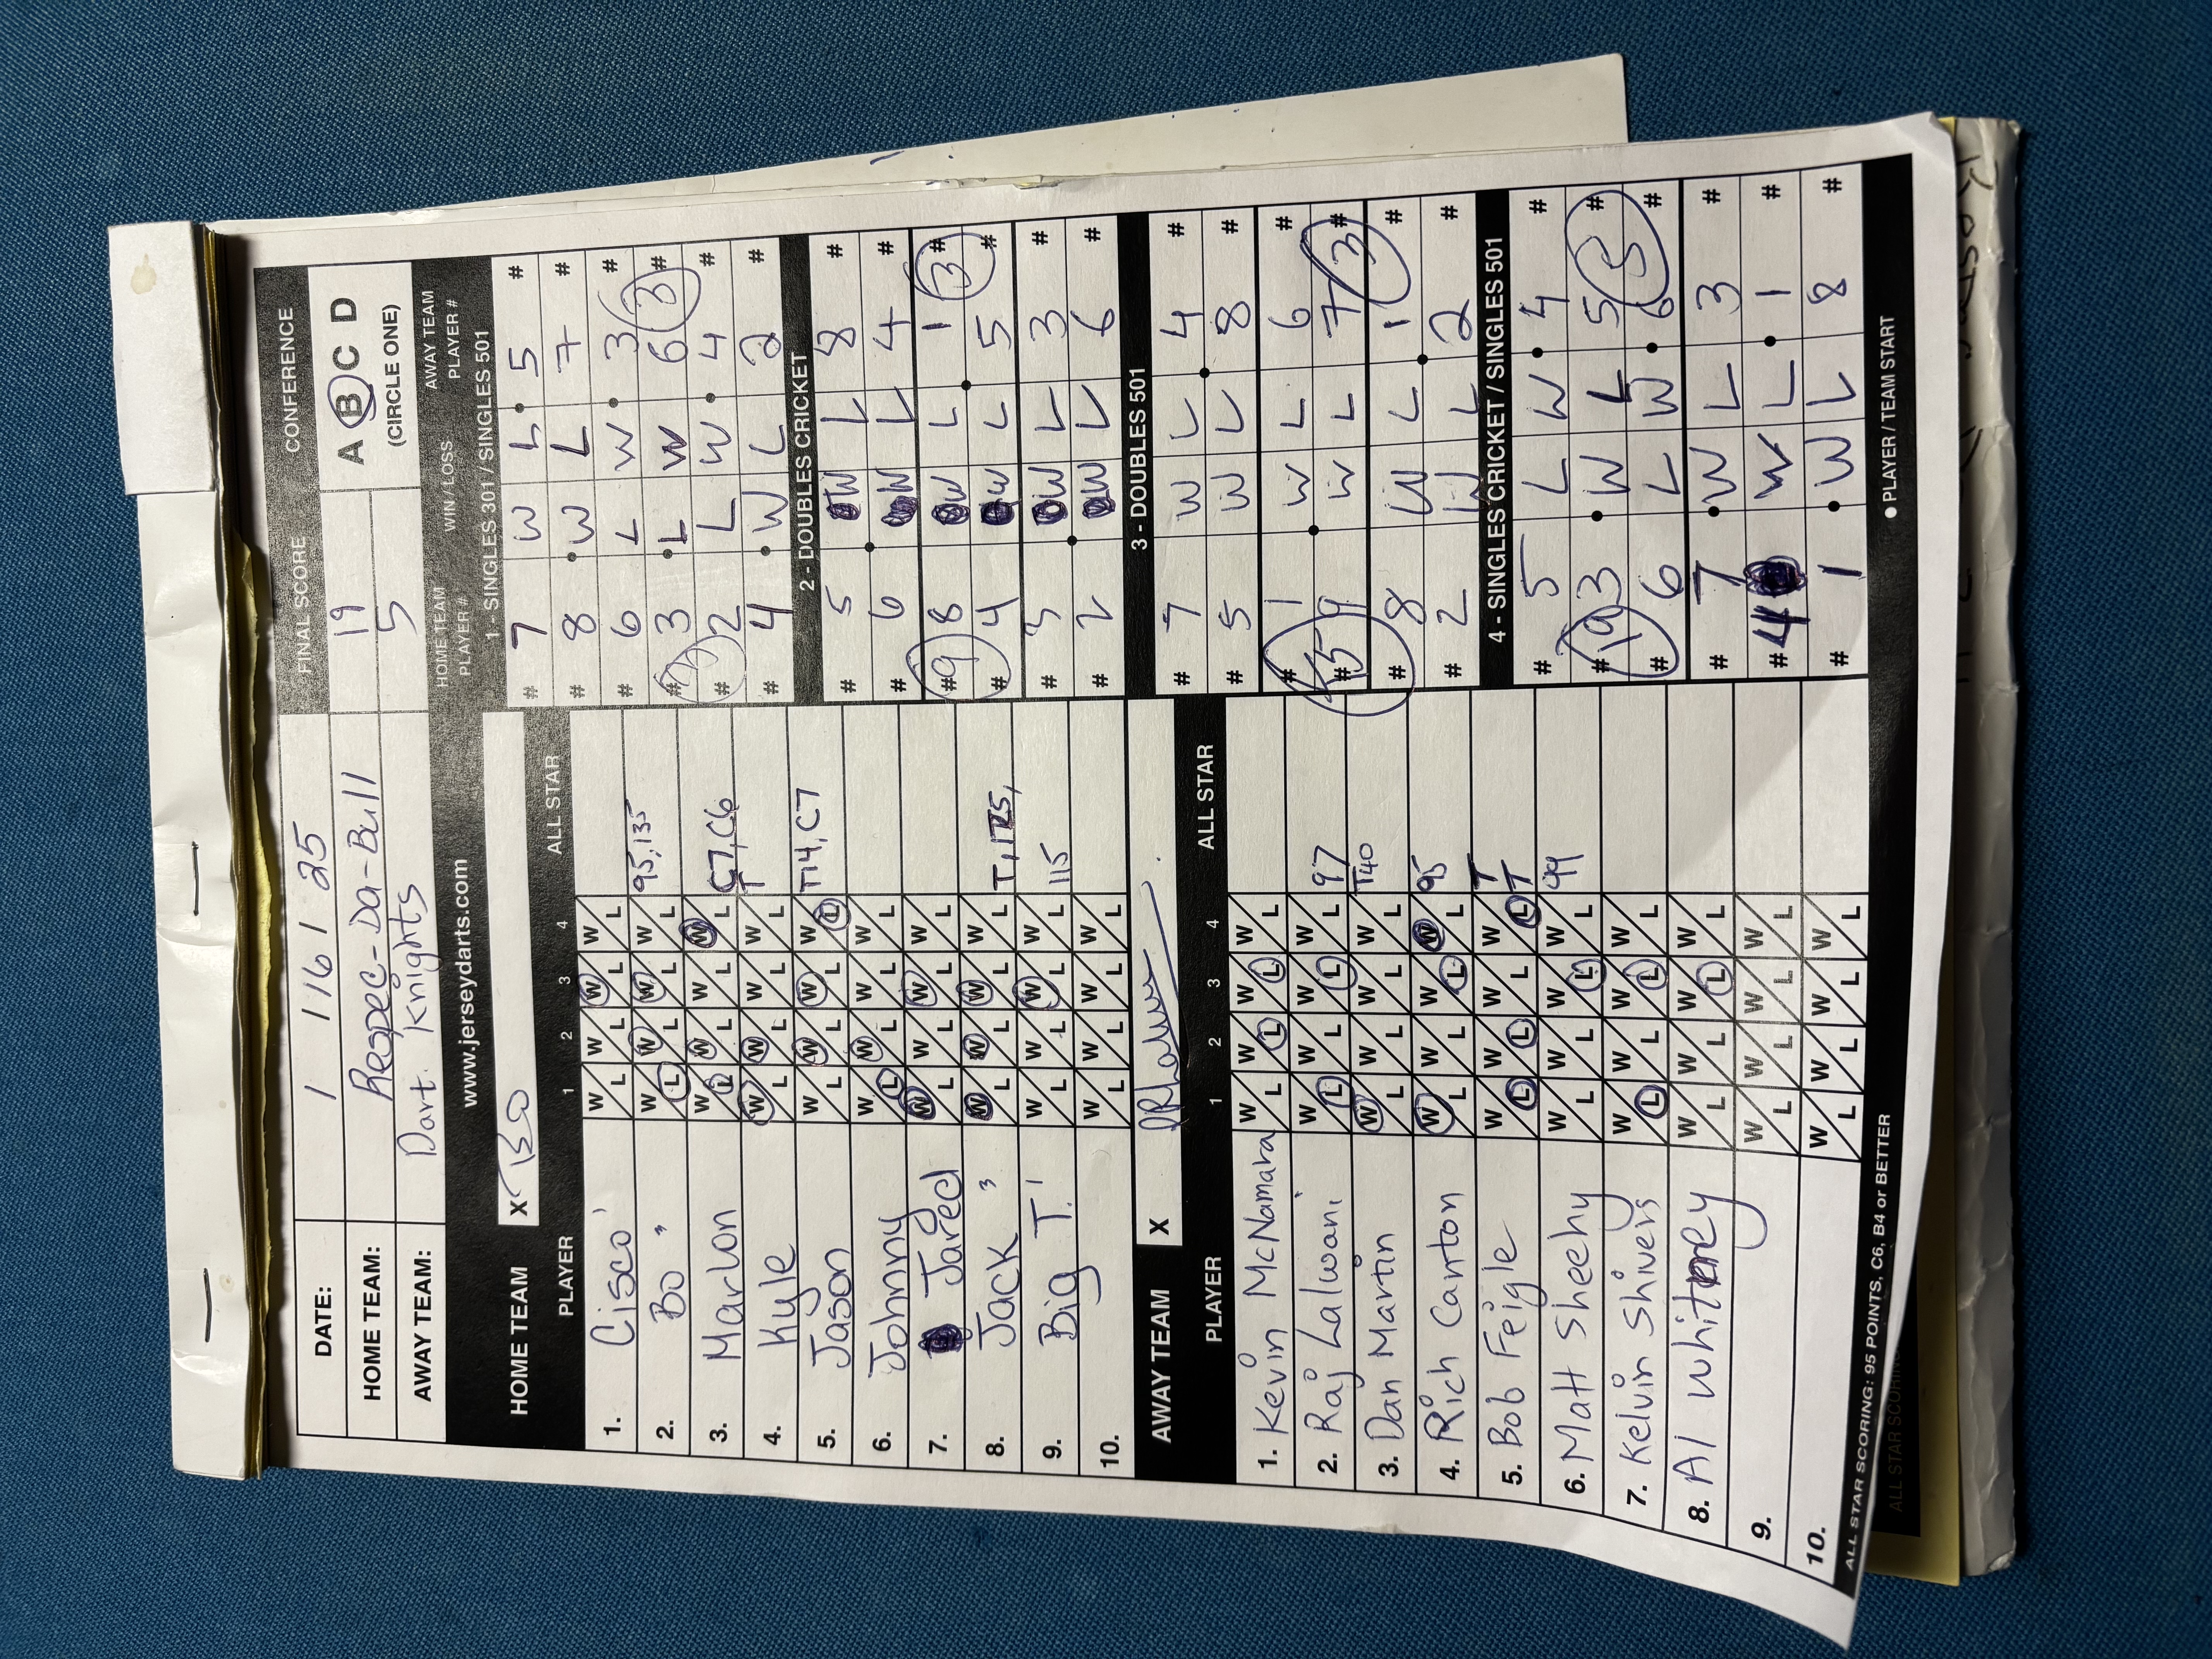 DATE: 1 / 16 / 25
FINAL SCORE
CONFERENCE
HOME TEAM: Respec-Da-Bull
19
A B C D
(CIRCLE ONE)
AWAY TEAM: Dart Knights
5
www.jerseydarts.com
HOME TEAM X BO
PLAYER 1 2 3 4 ALL STAR
1. Cisco W/L W/L W/L W/L
2. Bo W/L W/L W/L W/L 95, 135
3. Marlon W/L W/L W/L W/L C7, C6
T
4. Kyle W/L W/L W/L W/L
5. Jason W/L W/L W/L W/L T14, C7
6. Johnny W/L W/L W/L W/L
7. Jared W/L W/L W/L W/L
8. Jack W/L W/L W/L W/L T, 125,
9. Big T. W/L W/L W/L W/L 115
10. W/L W/L W/L W/L
AWAY TEAM X
PLAYER 1 2 3 4 ALL STAR
1. Kevin McNamara W/L W/L W/L W/L
2. Raj Lalwani W/L W/L W/L W/L 97
3. Dan Martin W/L W/L W/L W/L T40
4. Rich Canton W/L W/L W/L W/L 95
5. Bob Feigle W/L W/L W/L W/L T T
6. Matt Sheehy W/L W/L W/L W/L 99
7. Kelvin Shivers W/L W/L W/L W/L
8. Al Whitney W/L W/L W/L W/L
9. W/L W/L W/L W/L
10. W/L W/L W/L W/L
ALL STAR SCORING: 95 POINTS, C6, B4 or BETTER
HOME TEAM PLAYER #
WIN / LOSS
AWAY TEAM PLAYER #
1 - SINGLES 301 / SINGLES 501
# 7 W L 5 #
# 8 W L 7 #
# 6 L W 3 #
# 3 L W 6 # 3
# 2 L W 4 #
# 4 W L 2 #
2 - DOUBLES CRICKET
# 5 W L 8 #
# 6 W L 4 #
# 9 8 W L 1 3 #
# 4 W L 5 #
# 3 W L 3 #
# 2 W L 6 #
3 - DOUBLES 501
# 7 W L 4 #
# 5 W L 8 #
# 1 W L 6 #
# 15 9 W L 7 3 #
# 8 W L 1 #
# 2 W L 2 #
4 - SINGLES CRICKET / SINGLES 501
# 5 L W 4 #
# 19 3 W L 5 5 #
# 6 L W 6 #
# 7 W L 3 #
# 4 W L 1 #
# 1 W L 8 #
● PLAYER / TEAM START